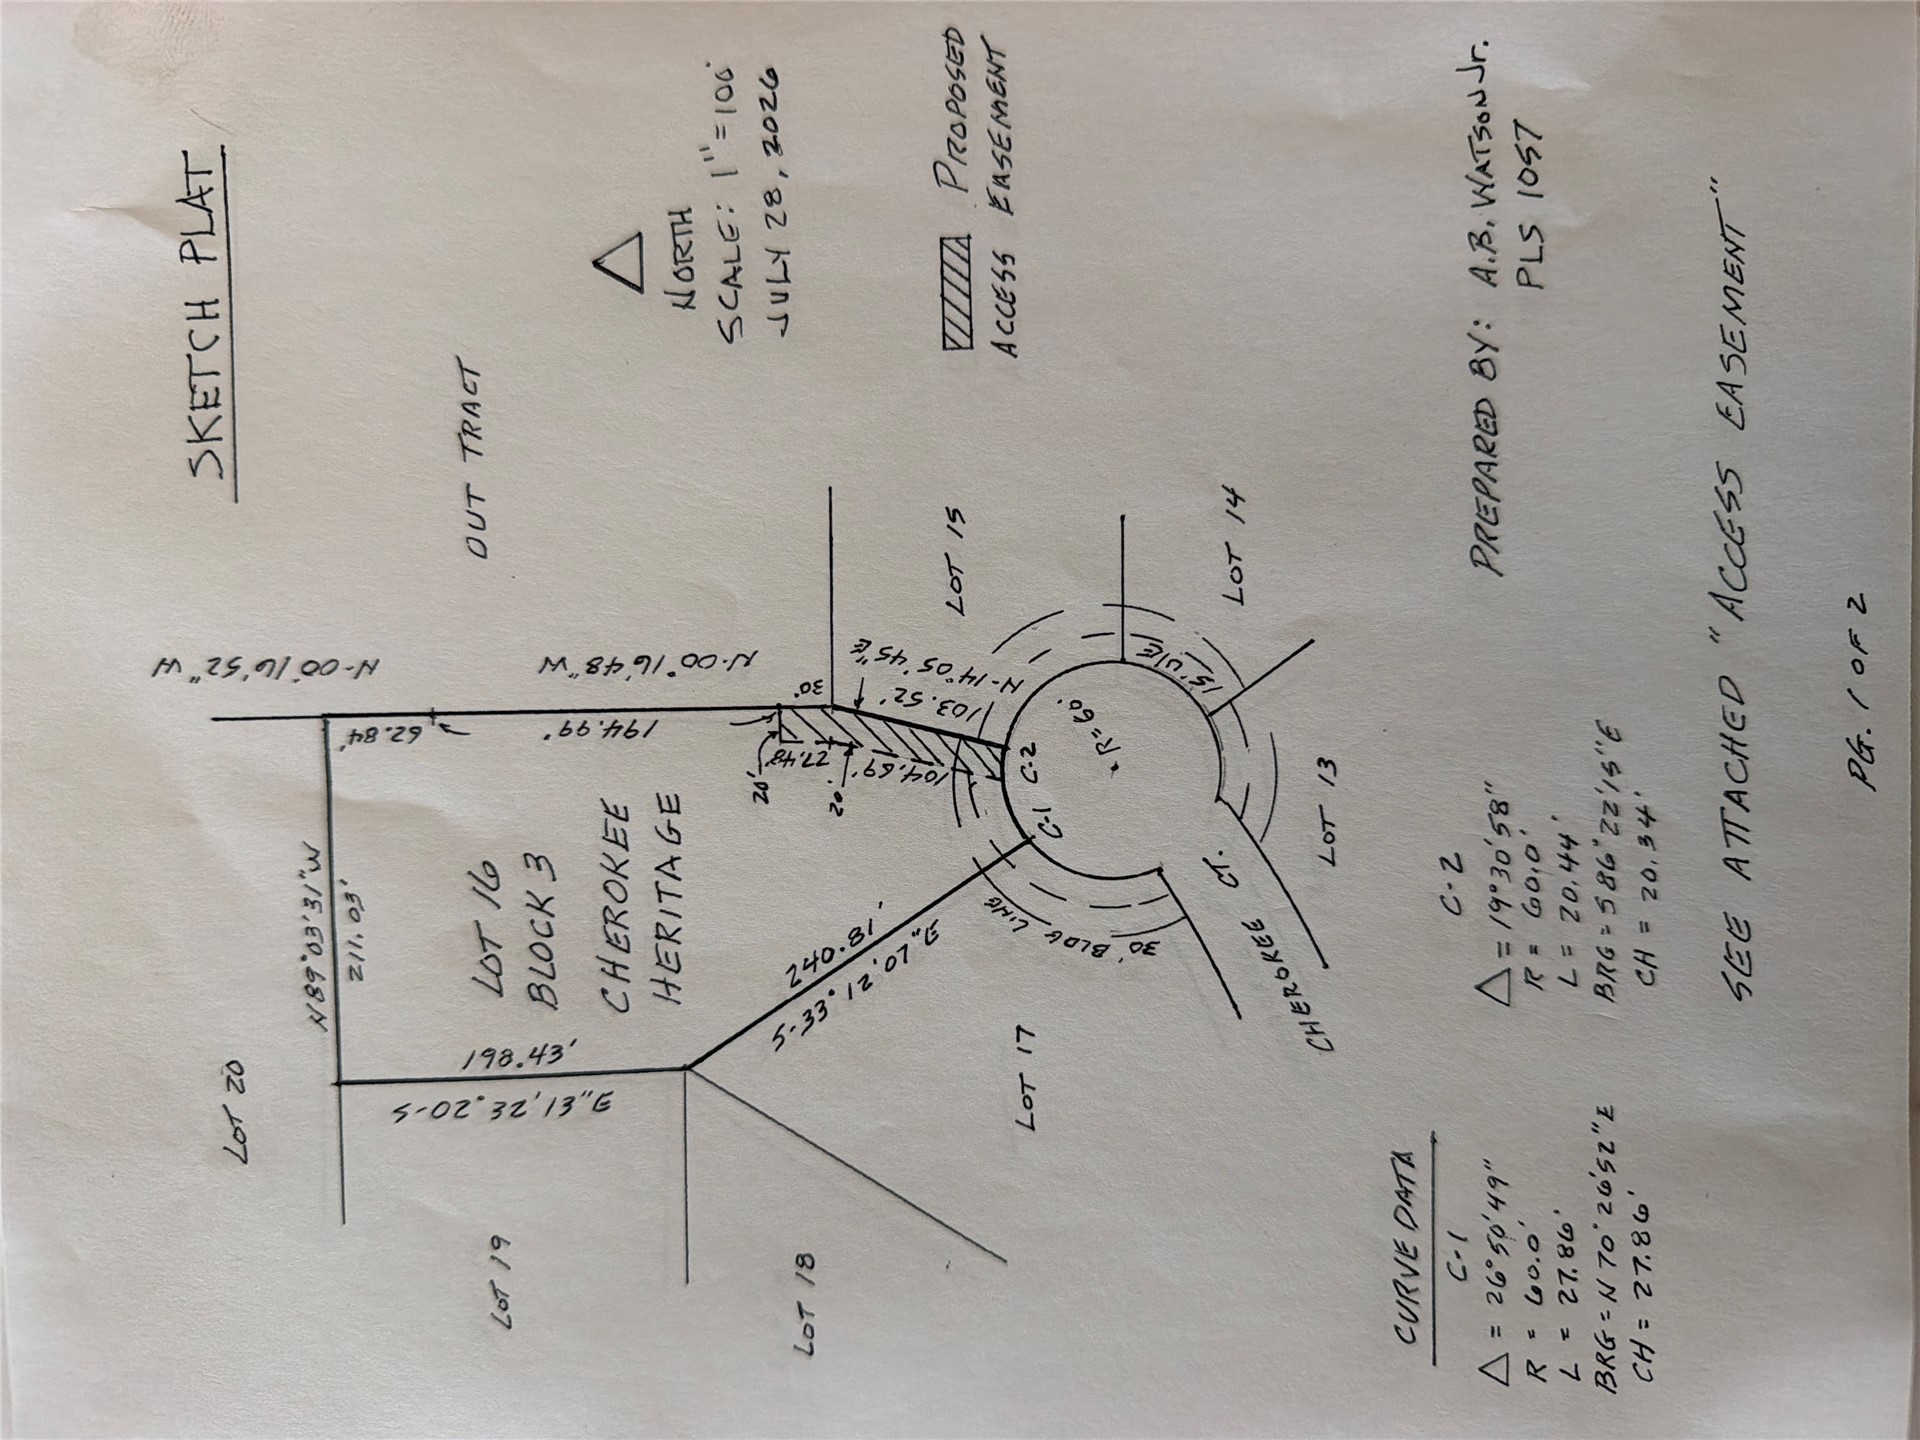 SKETCH PLAT
LOT 20
N-00°16'52"W
OUT TRACT
N89°03'31"W
211.03'
62.84'
NORTH
SCALE: 1"=100'
JULY 28, 2026
LOT 19
198.43'
S-02°32'13"E
LOT 16
BLOCK 3
CHEROKEE
HERITAGE
194.99'
N-00°16'48"W
30'
20'
27.48'
20'
104.69'
103.52'
N-14°05'45"E
LOT 15
PROPOSED
ACCESS EASEMENT
LOT 18
240.18'
S-33°12'07"E
LOT 17
C-1
C-2
R=60'
15' U/E
30' BLDG LINE
LOT 14
LOT 13
CHEROKEE CT.
CURVE DATA
C-1
Δ = 26°50'49"
R = 60.0'
L = 27.86'
BRG = N 70°26'52"E
CH = 27.86'
C-2
Δ = 19°30'58"
R = 60.0'
L = 20.44'
BRG = S 86°22'15"E
CH = 20.34'
PREPARED BY: A.B. WATSON Jr.
PLS 1057
SEE ATTACHED "ACCESS EASEMENT"
PG. 1 OF 2